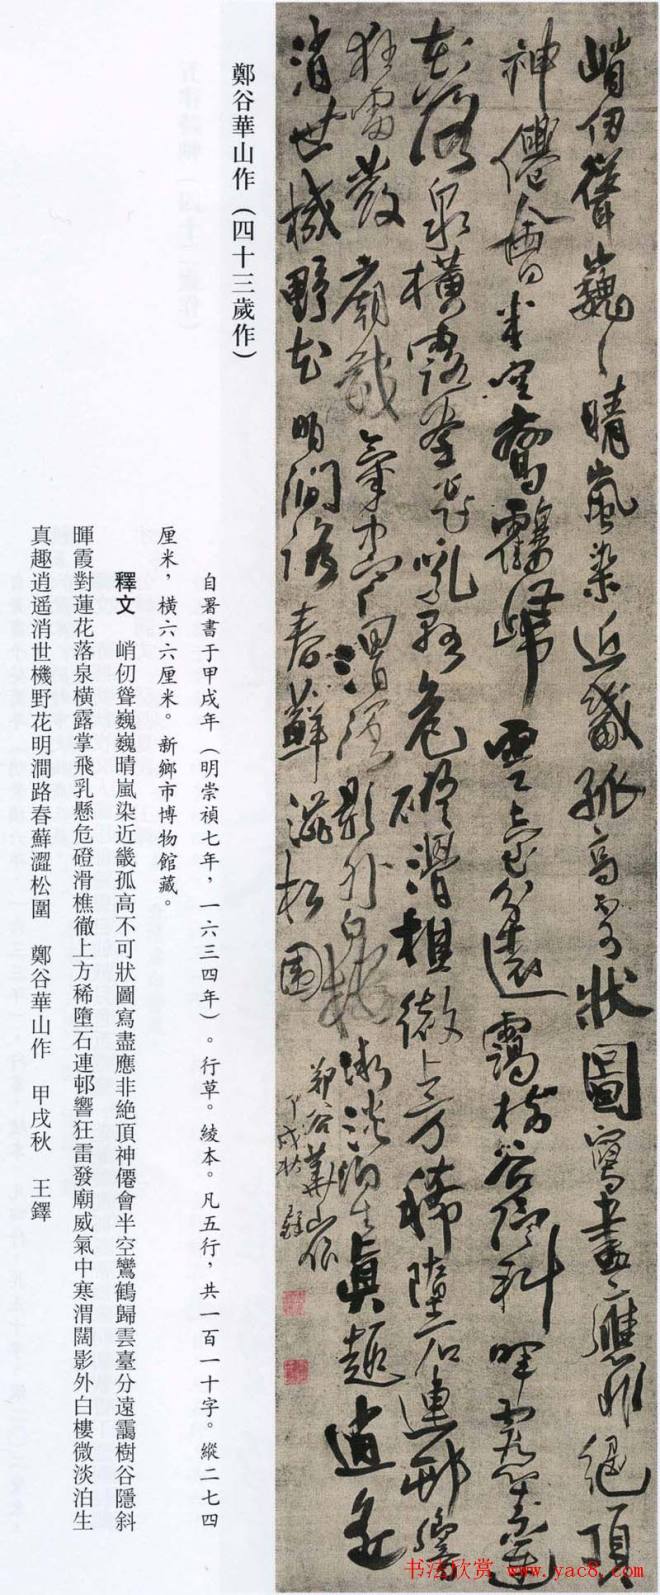 峭仞聳巍巍晴嵐染近畿孤高不可狀圖寫盡應非絕頂
神僊會半空鸞鶴歸雲臺分遠靄樹谷隱斜暉霞對蓮
花落泉橫露掌飛乳懸危磴滑樵徹上方稀墮石連邨響
狂雷發廟威氣中寒渭闊影外白樓微淡泊生真趣逍遙
消世機野花明澗路春蘚澀松圍
鄭谷華山作
甲戌秋 鐸
鄭谷華山作（四十三歲作）
自署書于甲戌年（明崇禎七年，一六三四年）。行草。綾本。凡五行，共一百一十字。縱二七四
厘米，橫六六厘米。新鄉市博物館藏。
釋文 峭仞聳巍巍晴嵐染近畿孤高不可狀圖寫盡應非絕頂神僊會半空鸞鶴歸雲臺分遠靄樹谷隱斜
暉霞對蓮花落泉橫露掌飛乳懸危磴滑樵徹上方稀墮石連邨響狂雷發廟威氣中寒渭闊影外白樓微淡泊生
真趣逍遥消世機野花明澗路春蘚澀松圍 鄭谷華山作 甲戌秋 王鐸
书法欣赏 www.yac8.com